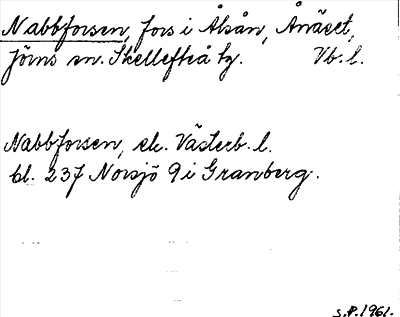 Nabbforsen, fors i Ålsån, Ånäset,
Jörns sn. Skellefteå tg. Vb. l.
Nabbforsen, ek. Västerb. l.
bl. 237 Norsjö 9 i Granberg.
S.P. 1961.